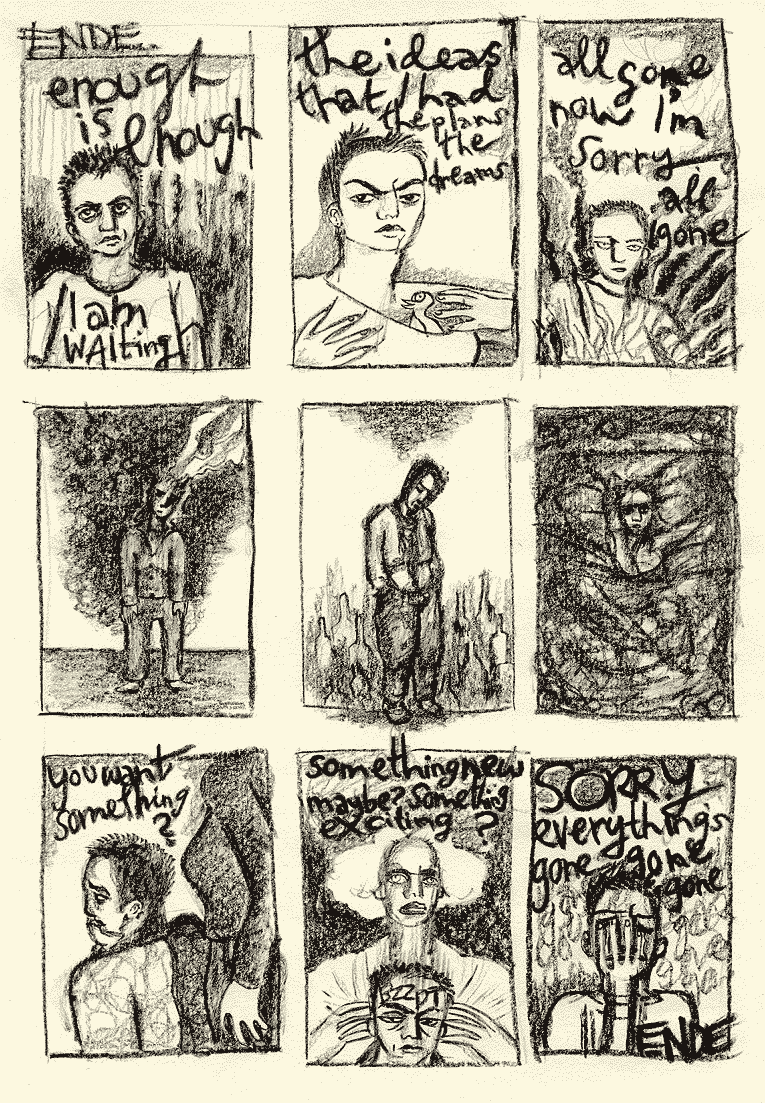 ENDE
enough
is enough
I am
WAIting
the ideas
that I had
the plans
the
dreams
all gone
now I'm
Sorry
all
gone
you want
something
?
something new
maybe? Something
exciting ?
BZZPT
SORRY
everything's
gone gone
gone
ENDE